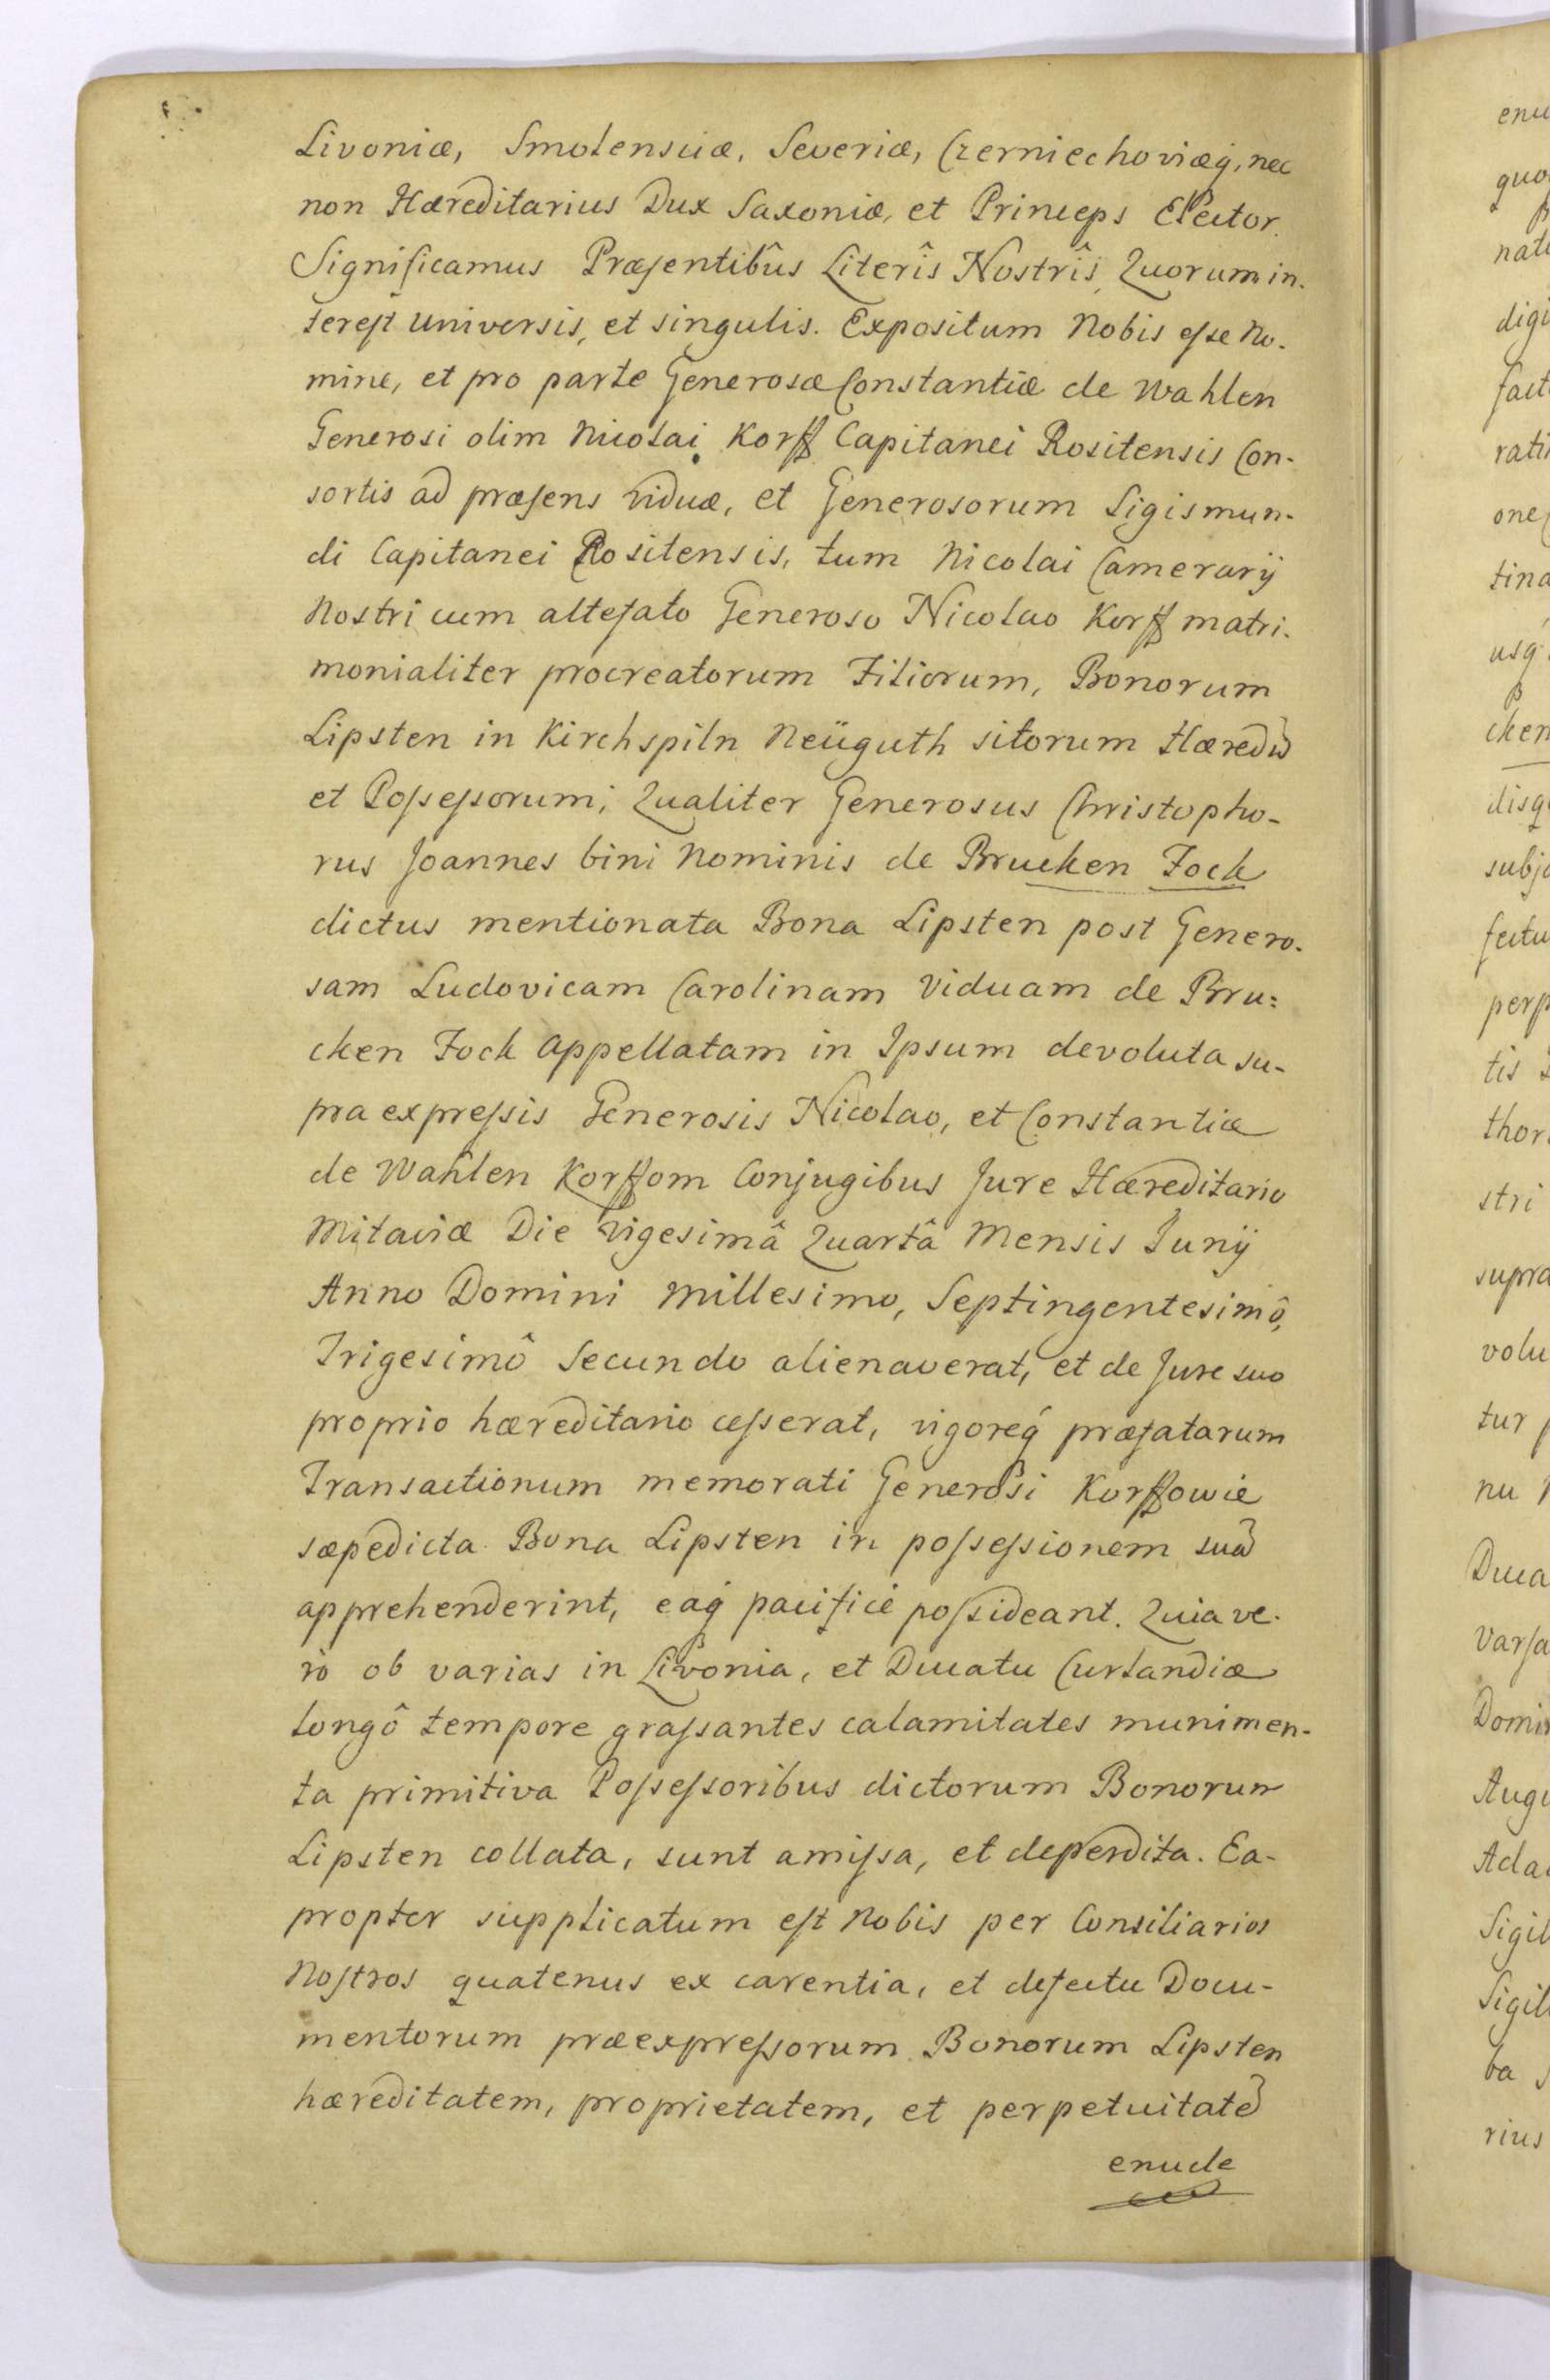 Livoniæ, Smolensciæ, Severiæ, Czerniechoviæq, nec
non Hæreditarius Dux Saxoniæ, et Princeps Elector.
Significamus Præsentibûs Literîs Nostrîs, Quorum in-
terest universis, et singulis. Expositum Nobis esse No-
mine, et pro parte Generosæ Constantiæ de Wahlen
Generosi olim Nicolai Korff Capitanei Rositensis Con-
sortis ad præsens viduæ, et Generosorum Sigismun-
di Capitanei Rositensis, tum Nicolai Camerarij
Nostri cum altefato Generoso Nicolao Korff matri-
monialiter procreatorum Filiorum, Bonorum
Lipsten in Kirchspiln Neüguth sitorum Hæredũ
et Possessorum; Qualiter Generosus Christopho-
rus Joannes bini Nominis de Brucken Fock
dictus mentionata Bona Lipsten post Genero-
sam Ludovicam Carolinam Viduam de Bru=
cken Fock appellatam in Ipsum devoluta su-
pra expressis Generosis Nicolao, et Constantiæ
de Wahlen Korffom Conjugibus Jure Hæreditario
Mitaviæ Die Vigesimâ Quartâ Mensis Junij
Anno Domini Millesimo, Septingentesimô,
Trigesimô Secundo alienaverat, et de Jure suo
proprio hæreditario cesserat, vigoreq præfatarum
Transactionum memorati Generosi Korffowie
sæpedicta Bona Lipsten in possessionem suã
apprehenderint, eaq pacificè possideant. Quia ve-
rò ob varias in Livonia, et Ducatu Curlandiæ
longô tempore grassantes calamitates munimen-
ta primitiva Possessoribus dictorum Bonorum
Lipsten collata, sunt amissa, et deperdita. Ea-
propter supplicatum est Nobis per Consiliarios
Nostros quatenus ex carentia, et defectu Docu-
mentorum præexpressorum Bonorum Lipsten
hæreditatem, proprietatem, et perpetuitatẽ
enucle